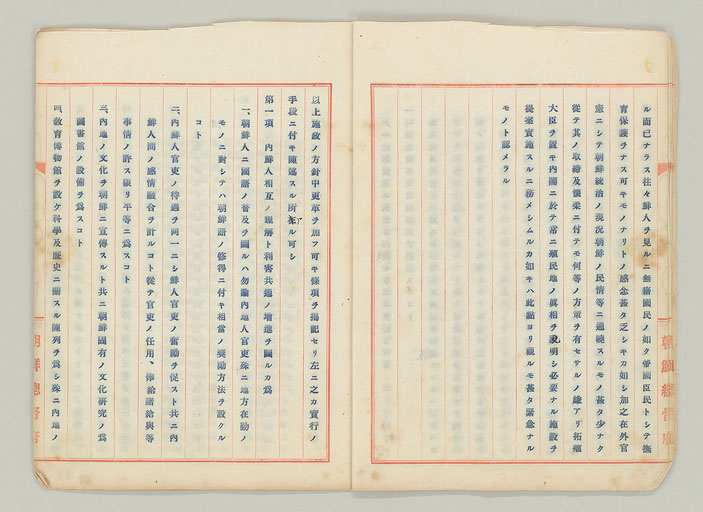 ル而已ナラス往々鮮人ヲ見ルニ無籍國民ノ如ク帝國臣民トシテ撫
育保護ヲナス可キモノナリトノ感念甚タ乏シキカ如シ加之在外官
憲ニシテ朝鮮統治ノ現況朝鮮ノ民情等ニ通曉スルモノ甚タ少ナク
從テ其ノ取締及懷柔ニ付テモ何等ノ方策ヲ有セサルノ嫌アリ拓殖
大臣ヲ置キ内閣ニ於テ常ニ殖民地ノ眞相ヲ說明シ必要ナル施設ヲ
提案實施スルニ務メシムルカ如キハ此點ヨリ觀ルモ甚タ緊急ナル
モノト認メラル
以上施政ノ方針中更革ヲ加フ可キ條項ヲ揭記セリ左ニ之カ實行ノ
手段ニ付キ陳述スル所アル可シ
第一項 內鮮人相互ノ理解ト利害共通ノ增進ヲ圖ルカ爲
一、朝鮮人ニ國語ノ普及ヲ圖ルハ勿論內地人官吏殊ニ地方在勤ノ
モノニ對シテハ朝鮮語ノ修得ニ付キ相當ノ奬勵方法ヲ設クル
コト
二、內鮮人官吏ノ待遇ヲ同一ニシ鮮人官吏ノ奮勵ヲ促スト共ニ內
鮮人間ノ感情融合ヲ計ルコト從テ官吏ノ任用、俸給諸給與等
事情ノ許ス限リ平等ニ爲スコト
三、內地ノ文化ヲ朝鮮ニ宣傳スルト共ニ朝鮮固有ノ文化硏究ノ爲
圖書館ノ設備ヲ爲スコト
四、敎育博物館ヲ設ケ科學及歷史ニ關スル陳列ヲ爲シ殊ニ內地ノ
朝鮮總督府
朝鮮總督府